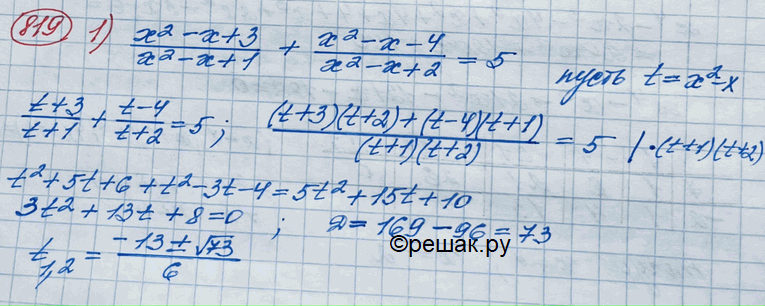 819 1) (x² - x + 3)/(x² - x + 1) + (x² - x - 4)/(x² - x + 2) = 5 пусть t = x² - x
(t+3)/(t+1) + (t-4)/(t+2) = 5; ((t+3)(t+2) + (t-4)(t+1))/((t+1)(t+2)) = 5 | ·(t+1)(t+2)
t² + 5t + 6 + t² - 3t - 4 = 5t² + 15t + 10
3t² + 13t + 8 = 0 ; D = 169 - 96 = 73
©решак.ру
t₁,₂ = (-13 ± √73)/6